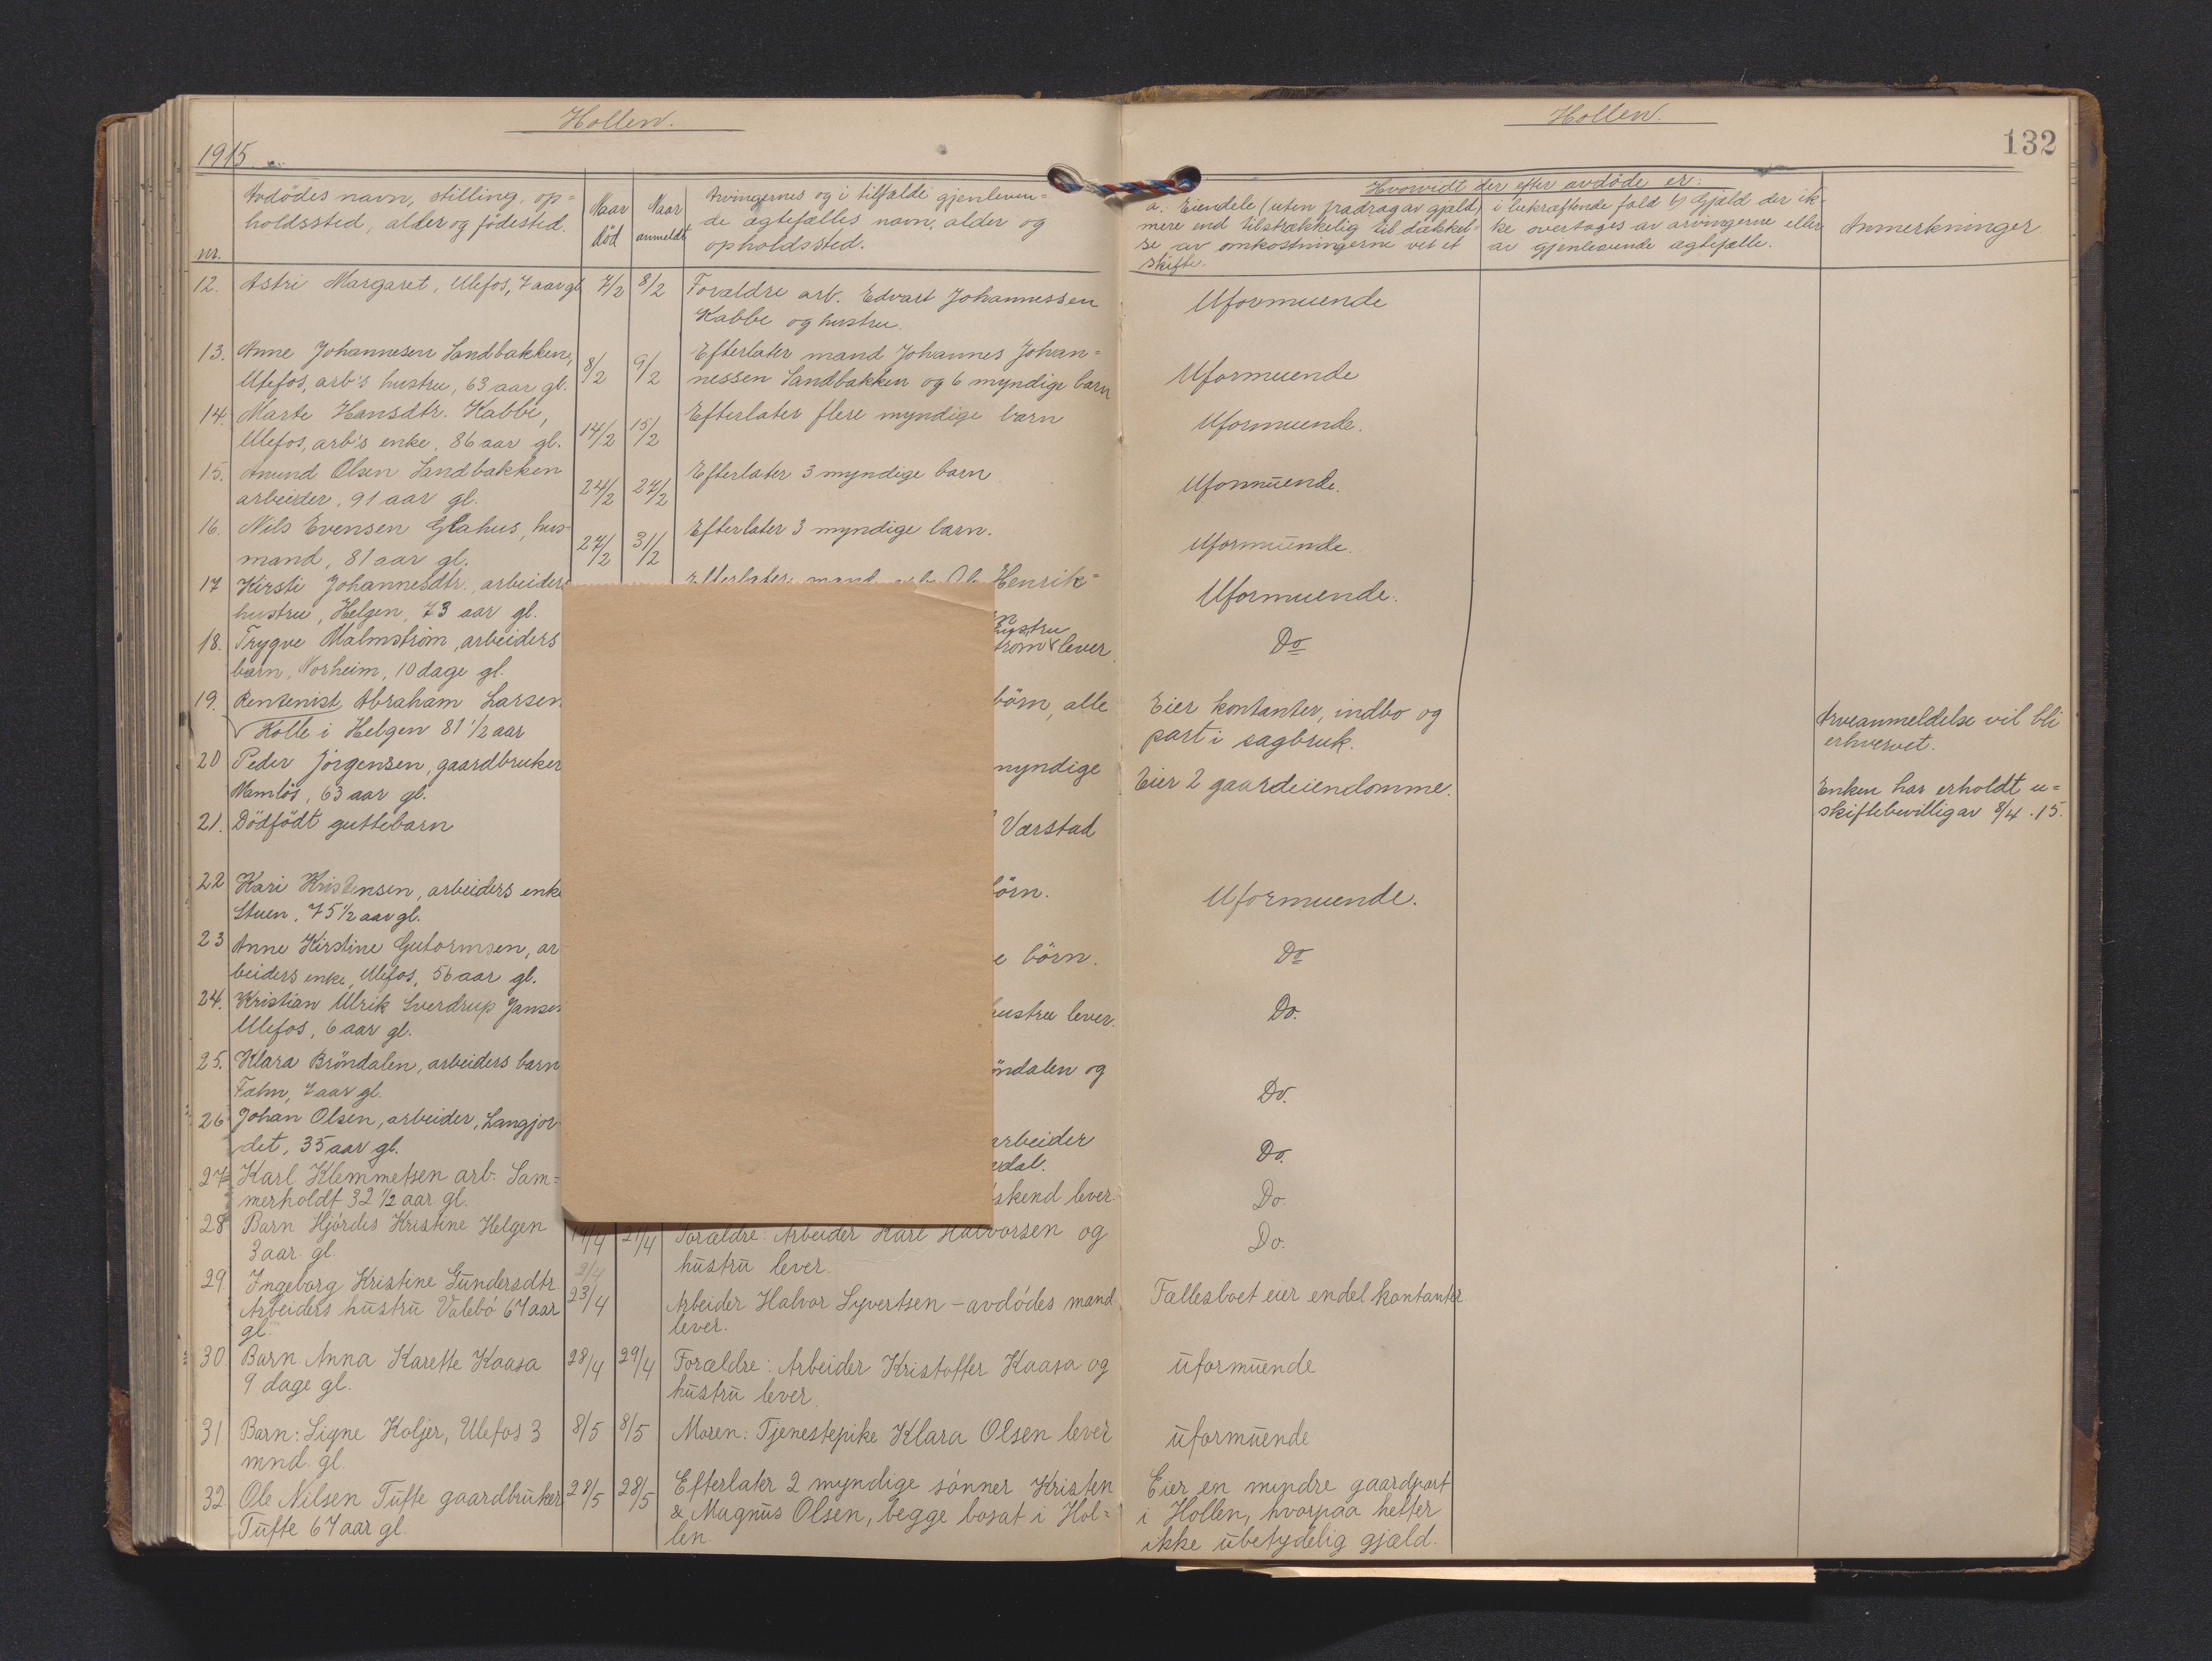 Hollen.
1915.
nr.
Avdödes navn, stilling, op=
holdssted, alder og födested.
Naar
död
Naar
anmeldt
Arvingernes og i tilfælde gjenleven=
de ægtefælles navn, alder og
opholdssted.
Hollen.
132
Hvorvidt der efter avdöde er:
a. Eiendele (uten fradrag av gjæld)
mere end tilstrækkelig til dækkel=
se av omkostningerne ved et
skifte.
i bekræftende fald b) Gjæld der ik=
ke overtages av arvingerne eller
av gjenlevende ægtefælle.
Anmerkninger.
12. Astri Margaret, Ulefos, 7 aar gl 7/2 8/2 Forældre arb. Edvart Johannessen Uformuende
Kabbe og hustru.
13. Anne Johannesen Sandbakken, 8/2 9/2 Efterlater mand Johannes Johan= Uformuende
Ulefos, arb's hustru, 63 aar gl. nessen Sandbakken og 6 myndige barn
14. Marte Hansdtr. Kabbe, 14/2 15/2 Efterlater flere myndige barn Uformuende.
Ulefos, arb's enke, 86 aar gl.
15. Amund Olsen Sandbakken 24/2 27/2 Efterlater 3 myndige barn Uformuende.
arbeider, 91 aar gl.
16. Nils Evensen Glahus, hus= 27/2 31/2 Efterlater 3 myndige barn. Uformuende.
mand, 81 aar gl.
17 Kirsti Johannesdtr., arbeiders Efterlater mand arb. Ole Henrik= Uformuende.
hustru, Helgen, 73 aar gl.
18. Trygve Malmström, arbeiders hustru
tröm lever Do
barn, Norheim, 10 dage gl.
19. Rentenist Abraham Larsen börn, alle Eier kontanter, indbo og Arveanmeldelse vil bli
Kolle i Helgen 81 1/2 aar part i sagbruk. erhvervet.
20 Peder Jörgensen, gaardbruker myndige Eier 2 gaardeiendomme. Enken har erholdt u=
Namlös, 63 aar gl. skiftebevilligav 8/4.15.
21. Dödfödt guttebarn Værstad
22 Kari Kristensen, arbeiders enke börn. Uformuende.
Stuen, 75 1/2 aar gl.
23 Anne Kirstine Gutormsen, ar
beiders enke, Ulefos, 56 aar gl. e börn. Do
24. Kristian Ulrik Sverdrup Jansen hustru lever. Do.
Ulefos, 6 aar gl.
25. Klara Bröndalen, arbeiders barn öndalen og Do.
Fæhn, 7 aar gl.
26 Johan Olsen, arbeider, Langjor arbeider Do.
det, 35 aar gl. dal.
27 Karl Klemmetsen arb. Sam= skend lever. Do.
merholdt 32 1/2 aar gl.
28 Barn Hjördis Kristine Helgen 19/4 21/4 Forældre: Arbeider Karl Halvorsen og Do.
3 aar gl. hustru lever.
29 Ingeborg Kristine Gundersdtr. 2/4
Arbeiders hustru Valebö 67 aar 23/4 Arbeider Halvor Syvertsen - avdödes mand Fællesboet eier endel kontanter.
gl. lever.
30. Barn Anna Karette Kaasa 28/4 29/4 Forældre: Arbeider Kristoffer Kaasa og uformuende
9 dage gl. hustru lever.
31 Barn: Signe Koljer, Ulefos 3 8/5 8/5 Moren: Tjenestepike Klara Olsen lever uformuende
mnd. gl.
32 Ole Nilsen Tufte gaardbruker 28/5 28/5 Efterlater 2 myndige sönner Kristen Eier en mindre gaardpart
Tufte 67 aar gl. & Magnus Olsen, begge bosat i Hol= i Hollen, hvorpaa hefter
len. ikke ubetydelig gjæld.